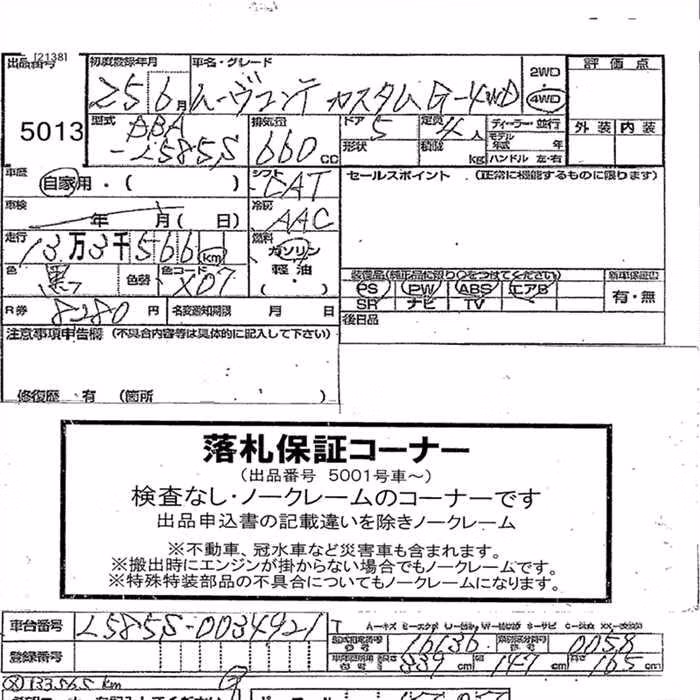 [2138]
出品番号 初度登録年月 車名・グレード 2WD 評価点
5013 25 6月 ムーヴコンテ カスタムG-4WD 4WD
型式 BBA-L585S 排気量 660cc ドア 5 形状 定員 4人 積載 kg ディーラー・並行 モデル年式 年 ハンドル 左・右 外装 内装
車歴 自家用・( ) シフト CAT セールスポイント (正常に機能するものに限ります)
車検 年 月( 日) 冷房 AAC
走行 13万3千566km 燃料 ガソリン 軽油 ( )
色 黒 色替 色コード X07
装備品(純正品に限り○をつけてください) 新車保証書
PS PW ABS エアB 有・無
SR ナビ TV
R券 8280円 名変通知期限 月 日 後日品
注意事項申告欄 (不具合内容等は具体的に記入して下さい)
修復歴 有 (箇所 )
落札保証コーナー
(出品番号 5001号車~)
検査なし・ノークレームのコーナーです
出品申込書の記載違いを除きノークレーム
※不動車、冠水車など災害車も含まれます。
※搬出時にエンジンが掛からない場合でもノークレームです。
※特殊特装部品の不具合についてもノークレームになります。
車台番号 L585S-0034921
登録番号 型式指定番号 16136 類別区分番号 0058
長さ 339cm 147cm 高さ 165cm
133565km